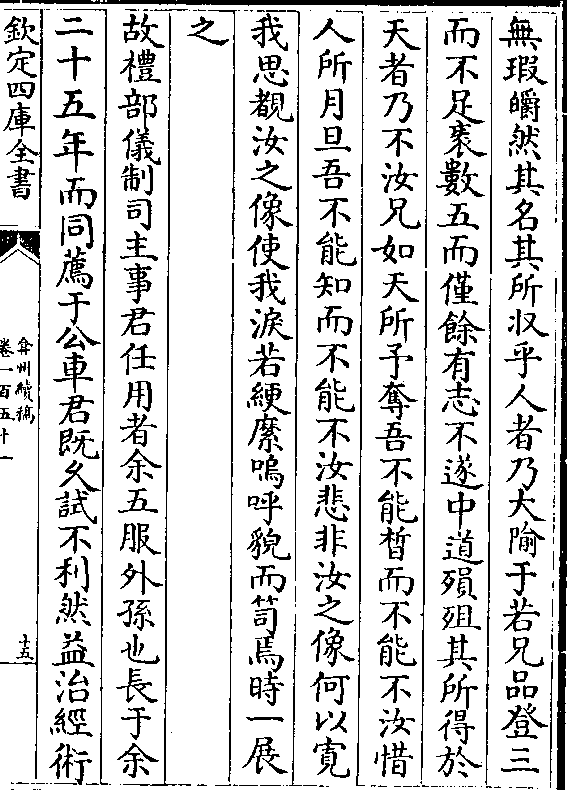 無瑕皭然其名其所収乎人者乃大隃于若兄品登三
而不足袠數五而僅餘有志不遂中道殞殂其所得於
天者乃不汝兄如天所予奪吾不能晳而不能不汝惜
人所月旦吾不能知而不能不汝悲非汝之像何以寛
我思覩汝之像使我淚若綆縻嗚呼貌而笥焉時一展
之
故禮部儀制司主事君任用者余五服外孫也長于余
二十五年而同薦于公車君既久試不利然益治經術
欽定四庫全書
弇州續稿
卷一百五十一
十五